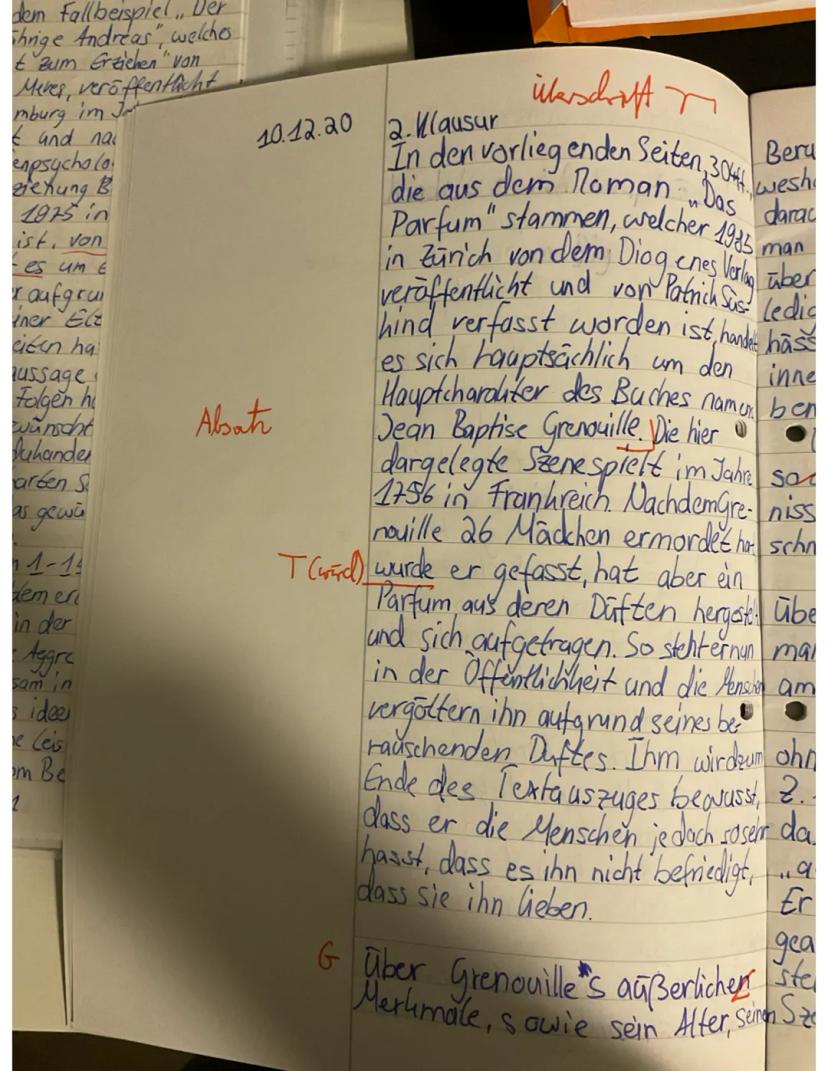 dem Fallbeispiel „Der
ährige Andreas", welches
t zum Erziehen" von
Meves, veröffentlicht
mburg im J
t und na
enpsycholo
ziehung B
1975 in
ist, von
es um E
r aufgru
iner Elt
eiten ha
aussage
Folgen h
wünscht
arten S
as gewü
n 1-1
dem er
in der
Aggre
sam in
s idee
he Leis
om Be
Überschrift
10.12.20
2. Klausur
In den vorliegenden Seiten, 304ff.,
die aus dem Roman „Das
Parfum" stammen, welcher 1985
in Zürich von dem Diogenes Verlag
veröffentlicht und von Patrick Süs-
kind verfasst worden ist, handelt
es sich hauptsächlich um den
Hauptcharakter des Buches namens
Absatz
Jean Baptise Grenouille. Die hier
dargelegte Szene spielt im Jahre
1756 in Frankreich. Nachdem Gre-
nouille 26 Mädchen ermordet hat
T (wird) wurde er gefasst, hat aber ein
Parfum aus deren Düften hergestellt
und sich aufgetragen. So steht er nun
in der Öffentlichkeit und die Menschen
vergöttern ihn aufgrund seines be-
rauschenden Duftes. Ihm wird zum
Ende des Textauszuges bewusst,
dass er die Menschen jedoch so sehr
hasst, dass es ihn nicht befriedigt,
dass sie ihn lieben.
G
Über Grenouille's äußerlichen
Merkmale, sowie sein Alter, seinen
Beru
wesh
darac
man
über
ledic
häss
inne
ben
so
niss
schn
übe
ma
am
ohn
z.
da
„a
Er
gea
ste
Sze